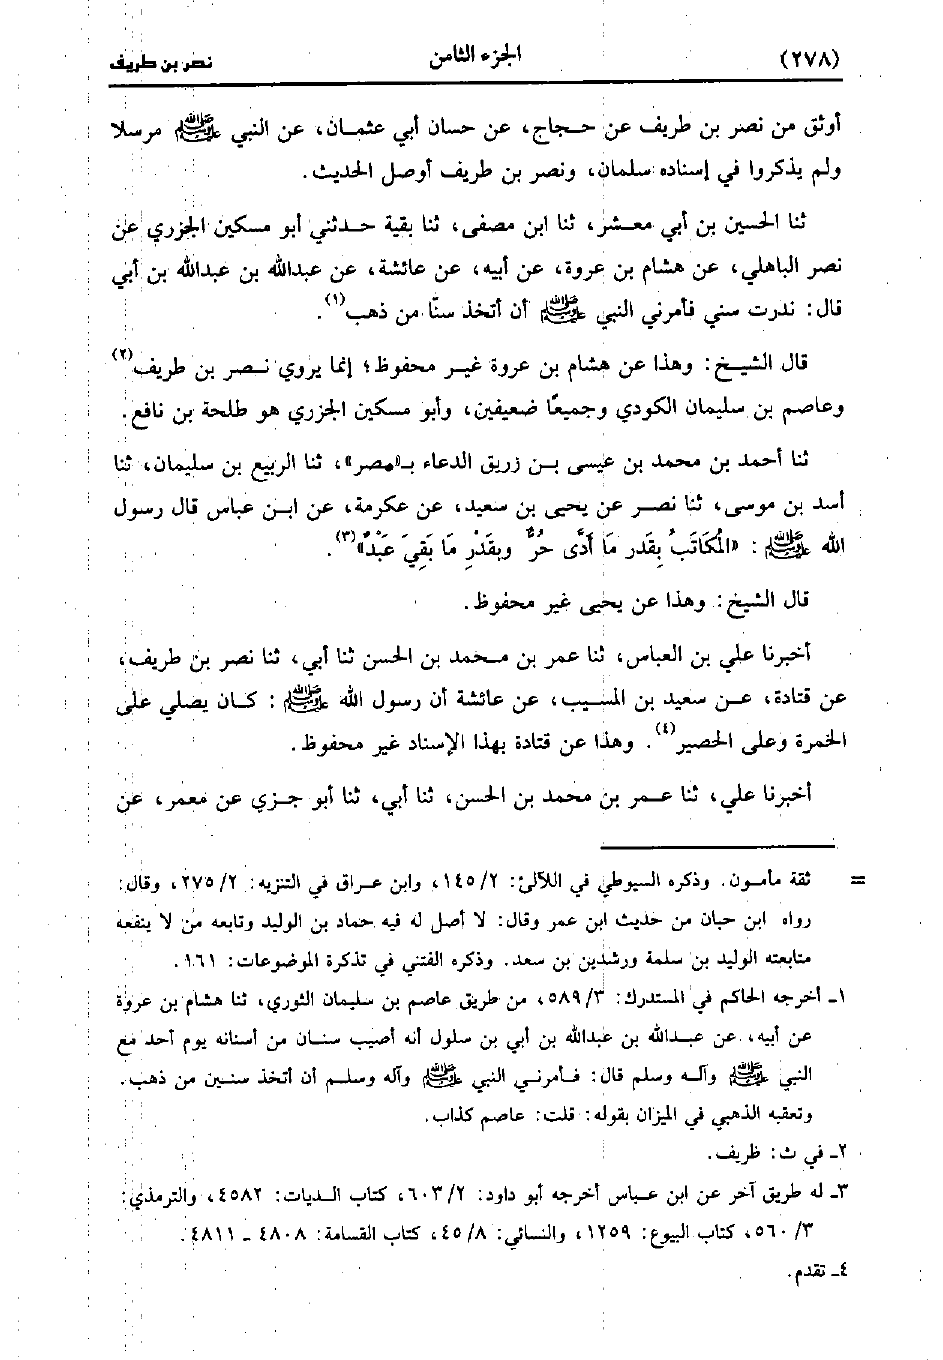 (٢٧٨) الجزء الثامن نصر بن طريف
أوثق من نصر بن طريف عن حجاج، عن حسان أبي عثمان، عن النبي ﷺ مرسلا
ولم يذكروا في إسناده سلمان، ونصر بن طريف أوصل الحديث.
ثنا الحسين بن أبي معشر، ثنا ابن مصفى، ثنا بقية حدثني أبو مسكين الجزري عن
نصر الباهلي، عن هشام بن عروة، عن أبيه، عن عائشة، عن عبدالله بن عبدالله بن أبي
قال: ندرت سني فأمرني النبي ﷺ أن أتخذ سنّا من ذهب(١).
قال الشيخ: وهذا عن هشام بن عروة غير محفوظ؛ إنما يروي نصر بن طريف(٢)
وعاصم بن سليمان الكودي وجميعًا ضعيفين، وأبو مسكين الجزري هو طلحة بن نافع.
ثنا أحمد بن محمد بن عيسى بن زريق الدعاء بـ«مصر»، ثنا الربيع بن سليمان، ثنا
أسد بن موسى، ثنا نصر عن يحيى بن سعيد، عن عكرمة، عن ابن عباس قال رسول
الله ﷺ: «المُكَاتَبُ بِقَدر مَا أَدَّى حُرٌّ وبقَدْرِ مَا بَقِيَ عَبْدٌ»(٣).
قال الشيخ: وهذا عن يحيى غير محفوظ.
أخبرنا علي بن العباس، ثنا عمر بن محمد بن الحسن ثنا أبي، ثنا نصر بن طريف،
عن قتادة، عن سعيد بن المسيب، عن عائشة أن رسول الله ﷺ: كان يصلي على
الخمرة وعلى الحصير(٤). وهذا عن قتادة بهذا الإسناد غير محفوظ.
أخبرنا علي، ثنا عمر بن محمد بن الحسن، ثنا أبي، ثنا أبو جزي عن معمر، عن
= ثقة مأمون. وذكره السيوطي في اللآلئ: ٢/ ١٤٥، وابن عراق في التنزيه: ٢/ ٢٧٥، وقال:
رواه ابن حبان من حديث ابن عمر وقال: لا أصل له فيه حماد بن الوليد وتابعه من لا ينفعه
متابعته الوليد بن سلمة ورشدين بن سعد. وذكره الفتني في تذكرة الموضوعات: ١٦١.
١ـ أخرجه الحاكم في المستدرك: ٣/ ٥٨٩، من طريق عاصم بن سليمان الثوري، ثنا هشام بن عروة
عن أبيه، عن عبدالله بن عبدالله بن أبي بن سلول أنه أصيب سنان من أسنانه يوم أحد مع
النبي ﷺ وآله وسلم قال: فأمرني النبي ﷺ وآله وسلم أن أتخذ سنين من ذهب.
وتعقبه الذهبي في الميزان بقوله: قلت: عاصم كذاب.
٢ـ في ث: ظريف.
٣ـ له طريق آخر عن ابن عباس أخرجه أبو داود: ٢/ ٦٠٣، كتاب الديات: ٤٥٨٢، والترمذي:
٣/ ٥٦٠، كتاب البيوع: ١٢٥٩، والنسائي: ٨/ ٤٥، كتاب القسامة: ٤٨٠٨ ـ ٤٨١١.
٤ـ تقدم.